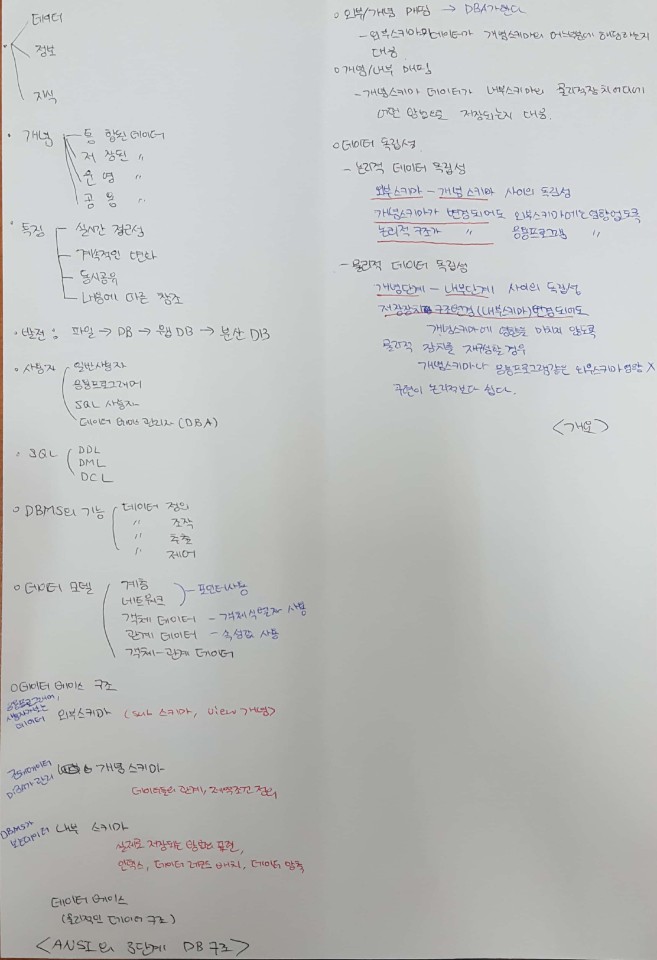 데이터
정보
지식
· 개념 - 통합된 데이터
저장된 〃
운영 〃
공용 〃
· 특징 - 실시간 접근성
계속적인 변화
동시공유
내용에 따른 참조
· 발전 : 파일 → DB → 웹 DB → 분산 DB
· 사용자 일반사용자
응용프로그래머
SQL 사용자
데이터 베이스 관리자 (DBA)
· SQL DDL
DML
DCL
○ DBMS의 기능 데이터 정의
〃 조작
〃 추출
〃 제어
○ 데이터 모델 계층
네트워크 - 포인터사용
객체 데이터 - 객체식별자 사용
관계 데이터 - 속성값 사용
객체-관계 데이터
○ 데이터 베이스 구조
응용프로그래머,
사용자가보는
데이터 외부스키마 (sub 스키마, view 개념)
전체데이터
DBA가 관리 개념스키마
데이터들의 관계, 제약조건 정의,
DBMS가
보는데이터 내부 스키마
실제로 저장되는 방법 표현,
인덱스, 데이터 레코드 배치, 데이터 압축
데이터 베이스
(물리적인 데이터 구조)
<ANSI의 3단계 DB 구조>
○ 외부/개념 매핑 → DBA가한다
- 외부스키마의데이터가 개념스키마의 어느부분에 해당되는지
대응
○ 개념/내부 매핑
- 개념스키마 데이터가 내부스키마의 물리적장치 어디에
어떤 방법으로 저장되는지 대응.
○ 데이터 독립성.
- 논리적 데이터 독립성
외부스키마 - 개념 스키마 사이의 독립성
개념스키마가 변경되어도 외부스키마에는영향없도록
논리적 구조가 〃 응용프로그램 〃
- 물리적 데이터 독립성
개념단계 - 내부단계 사이의 독립성
저장장치 구조변경(내부스키마)변경되어도
개념스키마에 영향을 미치지 않도록
물리적 장치를 재구성할 경우
개념스키마나 응용프로그램같은 외부스키마영향 X
구현이 논리적보다 쉽다.
<개요>